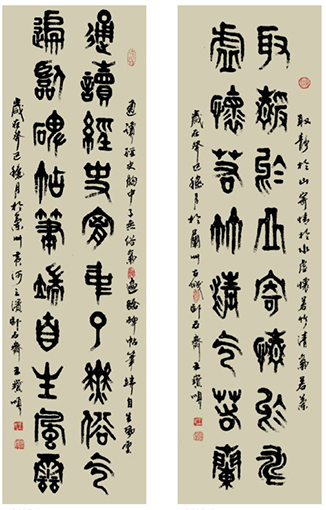 取靜於山寄情於水虛懷若竹清氣若蘭
取靜於山寄情於水
虛懷若竹清氣若蘭
歲在癸巳穐月於蘭州卧石齋王
通讀經史胸中了無俗氣遍臨碑帖筆端自生風雲
通讀經史胸中了無俗氣
遍臨碑帖筆端自生風雲
歲在癸巳穐月於蘭州黃河之濱卧石齋王